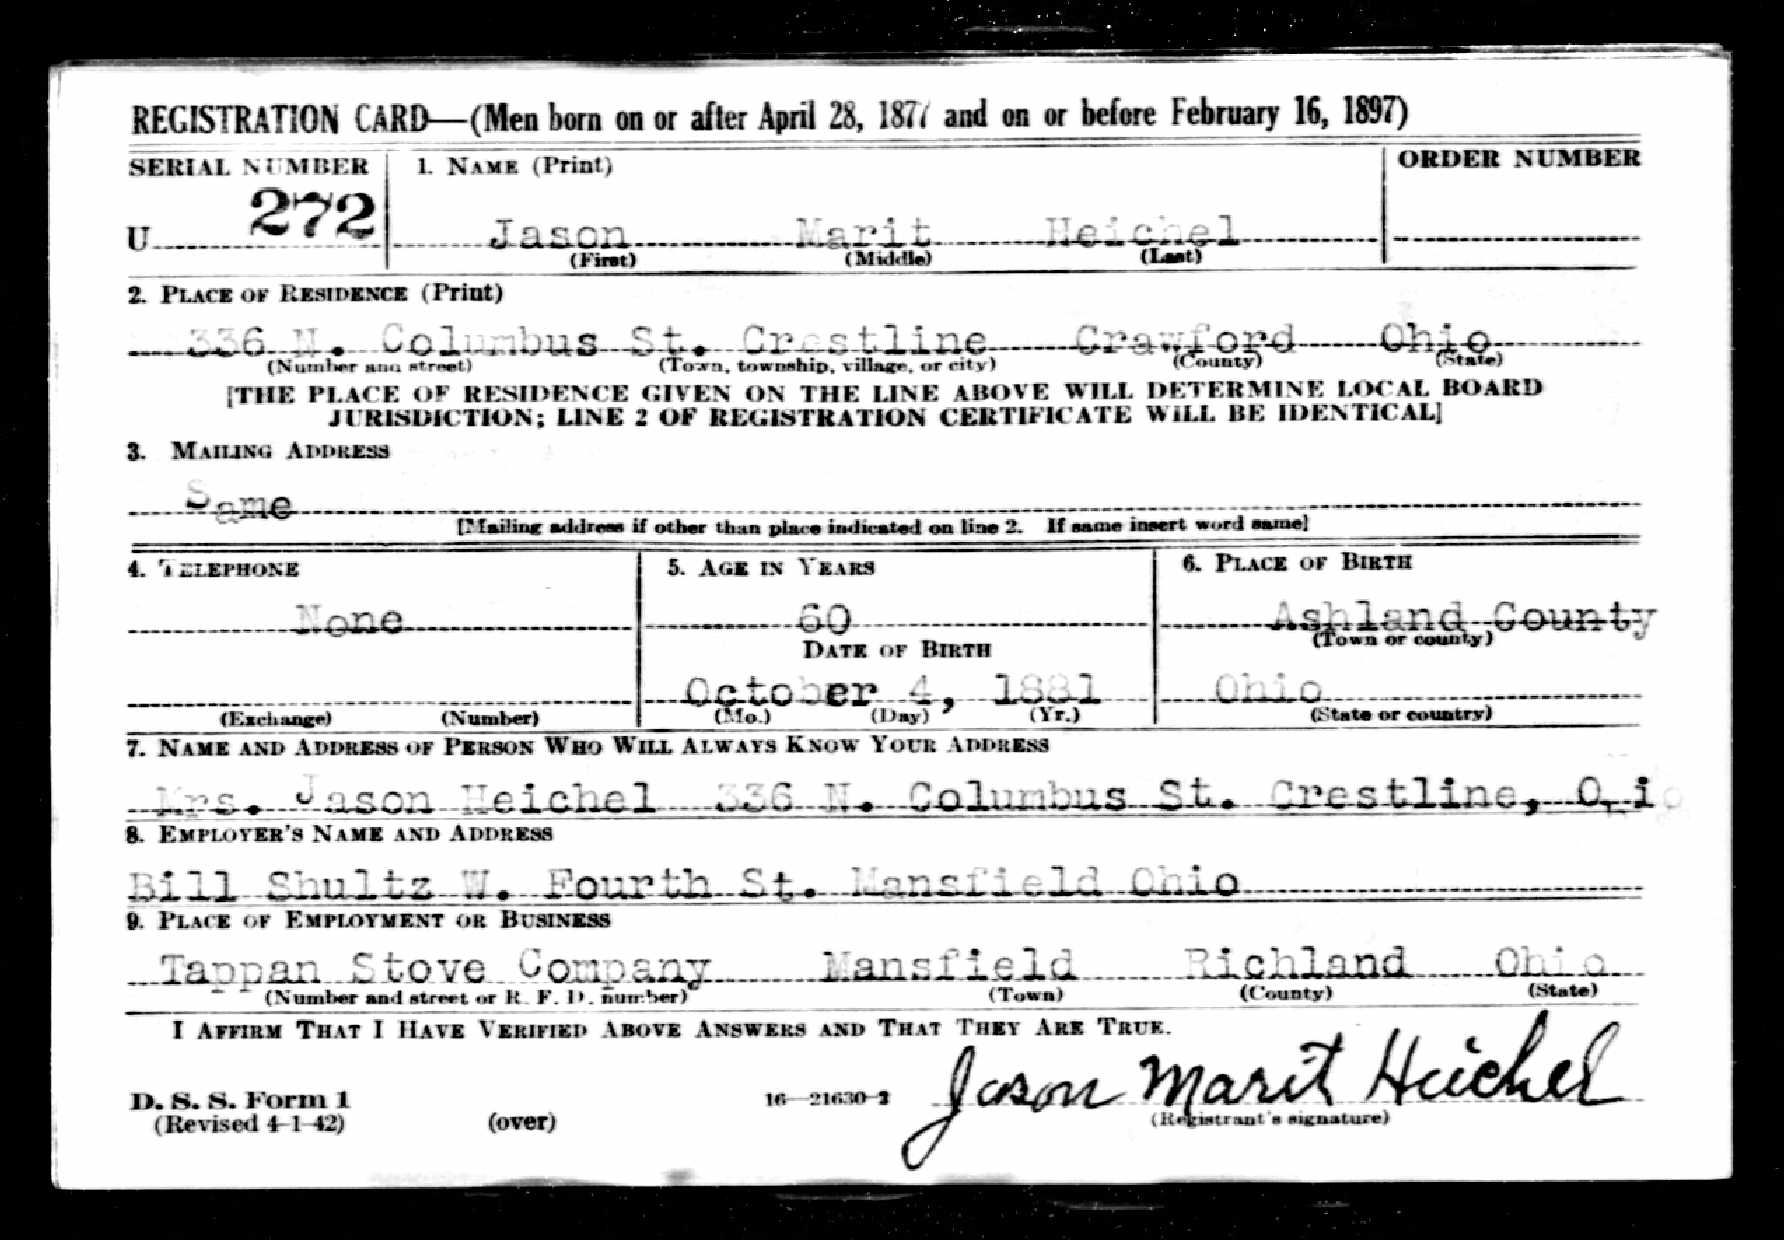 REGISTRATION CARD—(Men born on or after April 28, 1877 and on or before February 16, 1897)
SERIAL NUMBER 1. NAME (Print) ORDER NUMBER
U 272 Jason Marit Heichel
(First) (Middle) (Last)
2. PLACE OF RESIDENCE (Print)
336 N. Columbus St. Crestline Crawford Ohio
(Number and street) (Town, township, village, or city) (County) (State)
[THE PLACE OF RESIDENCE GIVEN ON THE LINE ABOVE WILL DETERMINE LOCAL BOARD
JURISDICTION; LINE 2 OF REGISTRATION CERTIFICATE WILL BE IDENTICAL]
3. MAILING ADDRESS
Same
[Mailing address if other than place indicated on line 2. If same insert word same]
4. TELEPHONE 5. AGE IN YEARS 6. PLACE OF BIRTH
None 60 Ashland County
DATE OF BIRTH (Town or county)
October 4, 1881 Ohio
(Exchange) (Number) (Mo.) (Day) (Yr.) (State or country)
7. NAME AND ADDRESS OF PERSON WHO WILL ALWAYS KNOW YOUR ADDRESS
Mrs. Jason Heichel 336 N. Columbus St. Crestline, Ohio
8. EMPLOYER'S NAME AND ADDRESS
Bill Shultz W. Fourth St. Mansfield Ohio
9. PLACE OF EMPLOYMENT OR BUSINESS
Tappan Stove Company Mansfield Richland Ohio
(Number and street or R. F. D. number) (Town) (County) (State)
I AFFIRM THAT I HAVE VERIFIED ABOVE ANSWERS AND THAT THEY ARE TRUE.
Jason Marit Heichel
D. S. S. Form 1 16—21630-2
(Revised 4-1-42) (over) (Registrant's signature)